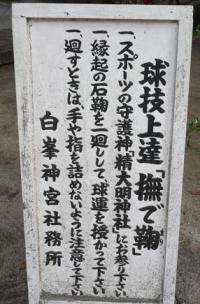 球技上達「撫で鞠」
まり
一、スポーツの守護神「精大明神社」にお参り下さい
一、縁起の石鞠を一廻しして、球運を授かって下さい
一、廻すときは、手や指を詰めないように注意して下さい
白峯神宮社務所